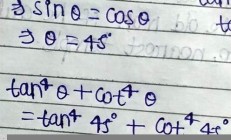 ⇒ sinθ = cosθ
⇒ θ = 45°
tan⁴ θ + cot⁴ θ
= tan⁴ 45° + cot⁴ 45°